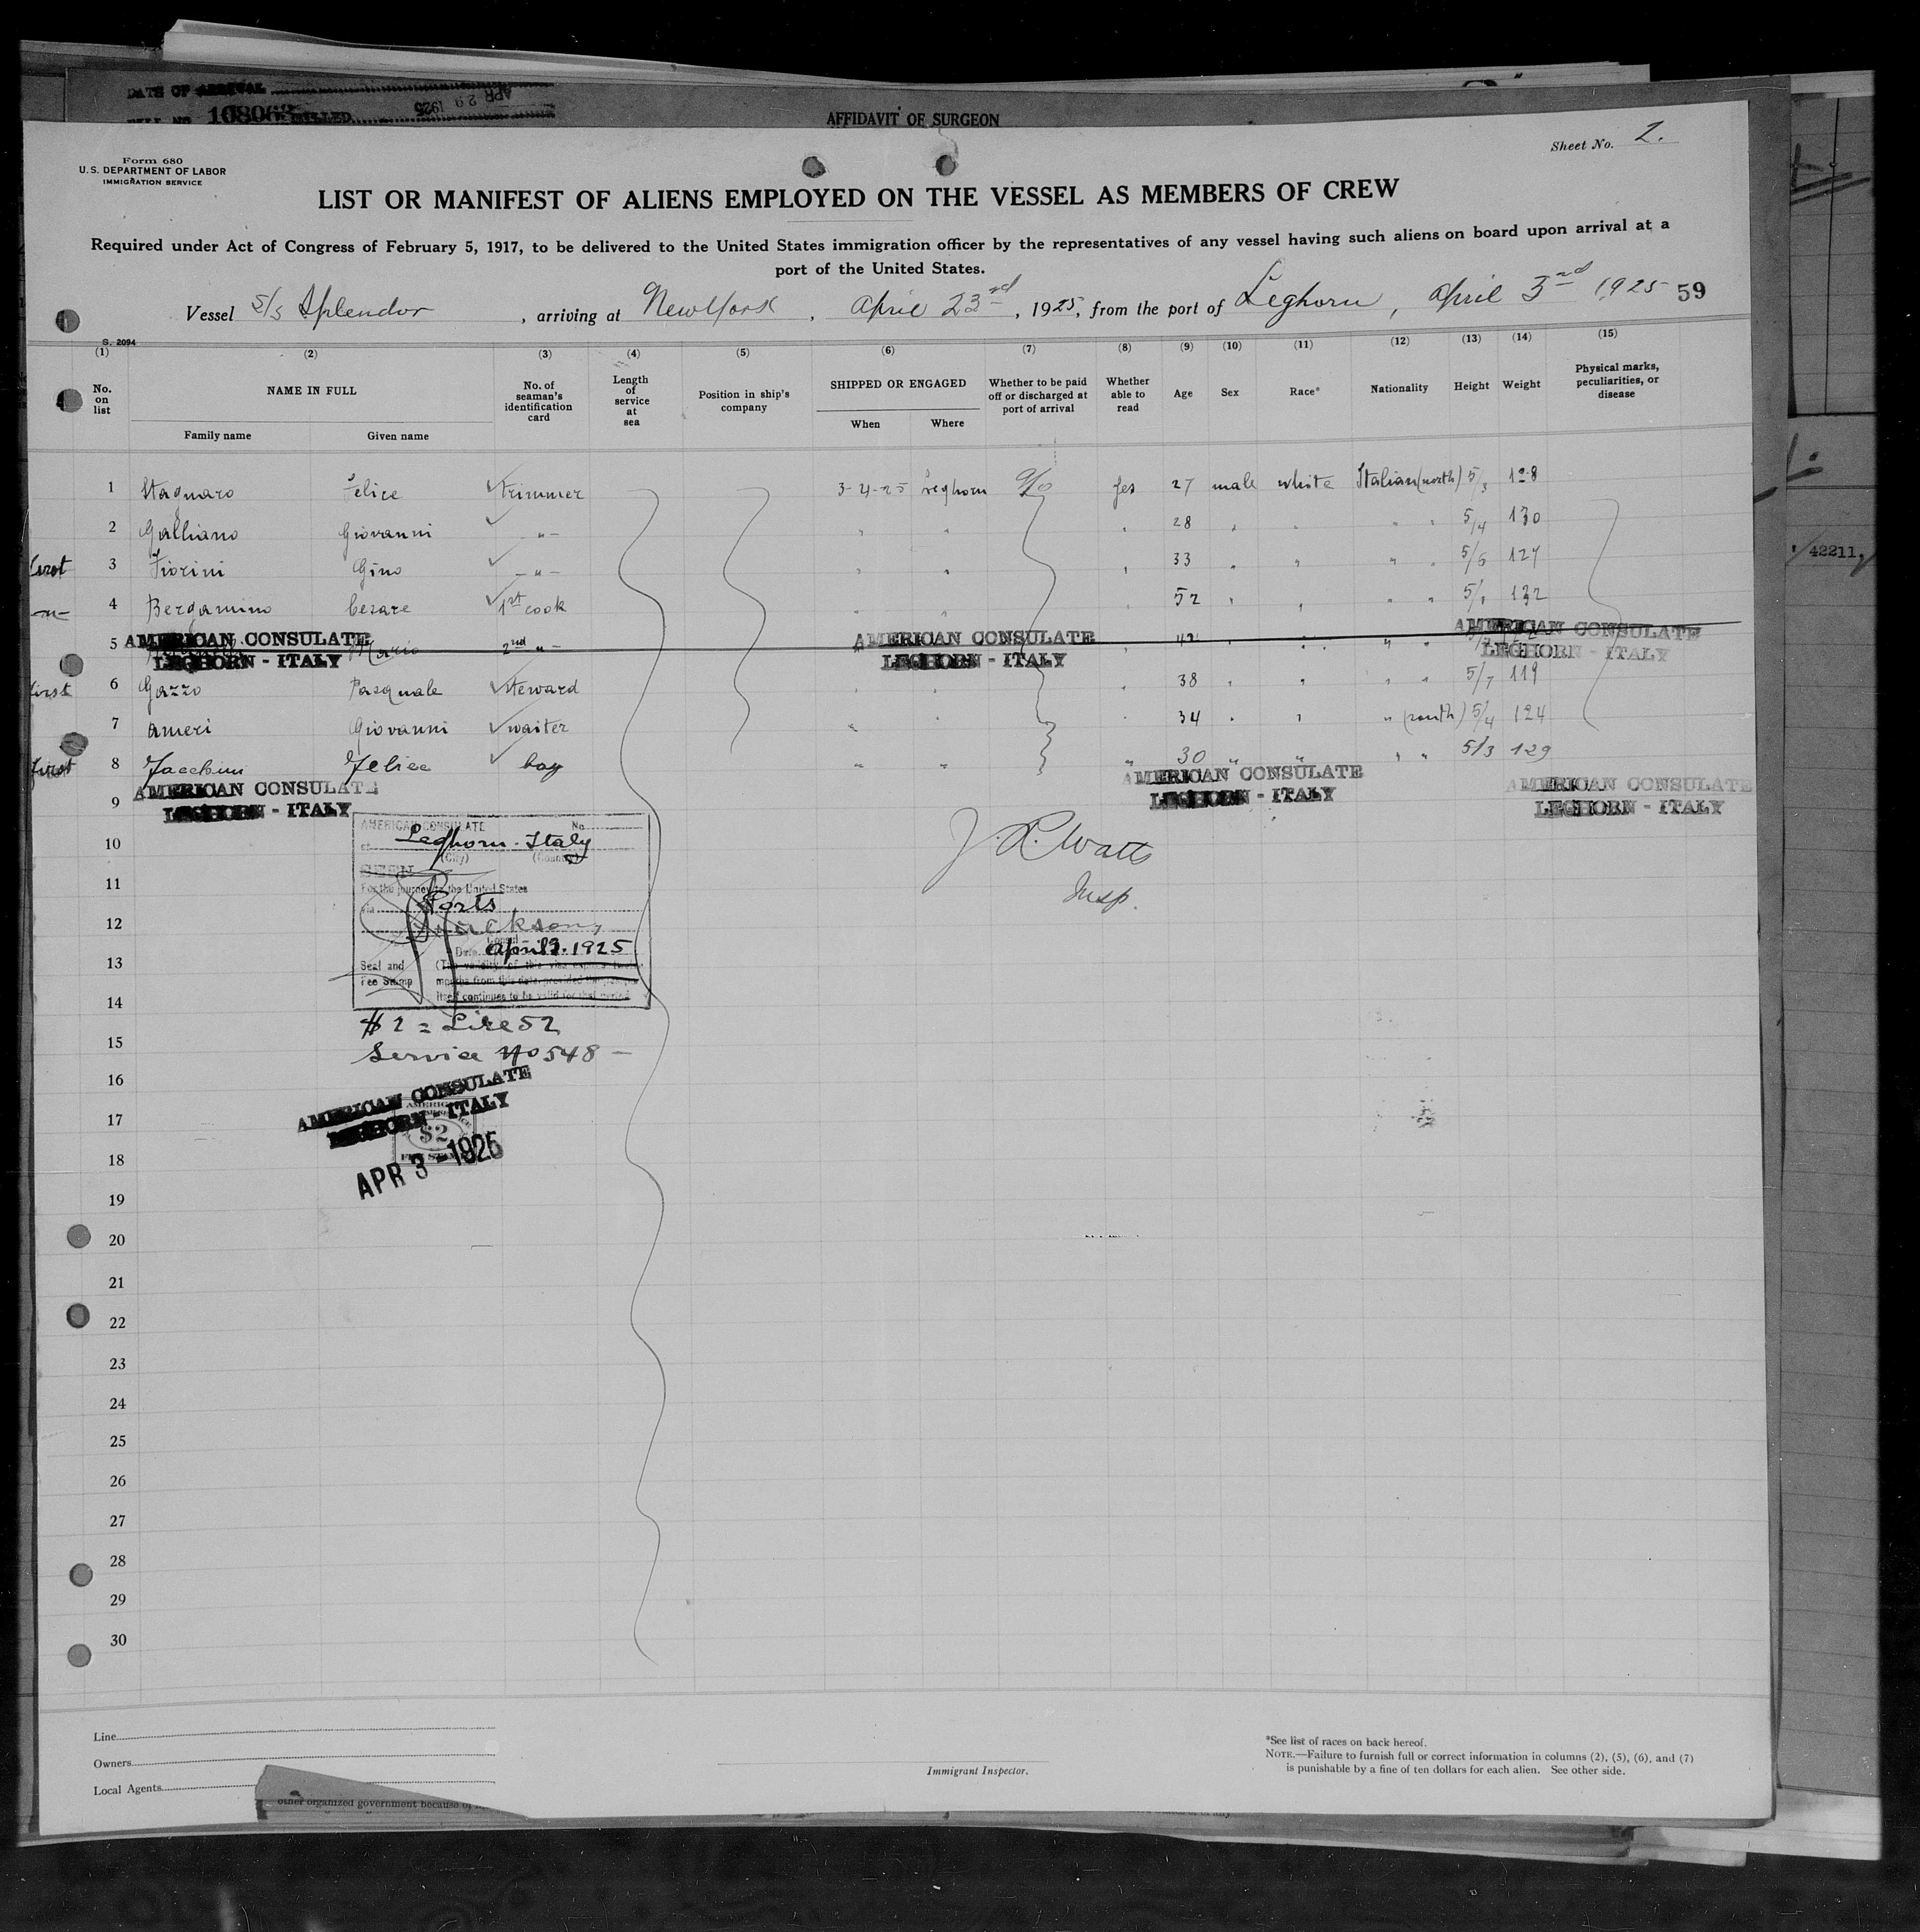 DATE OF ARRIVAL
APR 29 1925
AFFIDAVIT OF SURGEON
Form 680
U.S. DEPARTMENT OF LABOR
IMMIGRATION SERVICE
Sheet No. 2.
LIST OR MANIFEST OF ALIENS EMPLOYED ON THE VESSEL AS MEMBERS OF CREW
Required under Act of Congress of February 5, 1917, to be delivered to the United States immigration officer by the representatives of any vessel having such aliens on board upon arrival at a
port of the United States.
Vessel S/S Splendor, arriving at New York, April 23rd, 1925, from the port of Leghorn, April 3rd 1925 59
S. 2094
(1) (2) (3) (4) (5) (6) (7) (8) (9) (10) (11) (12) (13) (14) (15)
No. on list NAME IN FULL No. of seaman's identification card Length of service at sea Position in ship's company SHIPPED OR ENGAGED Whether to be paid off or discharged at port of arrival Whether able to read Age Sex Race* Nationality Height Weight Physical marks, peculiarities, or disease
Family name Given name When Where
1 Stagnaro Felice trimmer 3-4-25 Leghorn yes 27 male white Italian (north) 5/3 128
2 Galliano Giovanni -"- 28 " " " " 5/4 130
first 3 Fiorini Gino -"- 33 " " " " 5/6 127
-"- 4 Bergamino Cesare 1st cook 52 " " " " 132
5 Mario 2nd -"- 42
AMERICAN CONSULATE
LEGHORN - ITALY
AMERICAN CONSULATE
LEGHORN - ITALY
AMERICAN CONSULATE
LEGHORN - ITALY
first 6 Gazzo Pasquale steward 38 " " " " 5/7 119
7 Ameri Giovanni waiter 34 " " " (south) 5/4 124
first 8 Jacchini Felice boy " " " 30 " " " " 5/3 129
AMERICAN CONSULATE
LEGHORN - ITALY
AMERICAN CONSULATE
LEGHORN - ITALY
AMERICAN CONSULATE
LEGHORN - ITALY
9
10
11
12
13
14
15
16
17
18
19
20
21
22
23
24
25
26
27
28
29
30
AMERICAN CONSULATE No.
at Leghorn - Italy
(City) (Country)
SEEN
For the journey to the United States
via Ports
Jackson
Date April 3. 1925
Seal and
Fee Stamp
(The validity of this visa expires twelve
months from this date provided the passport
itself continues to be valid for that period
$2 = Lire 52
Service No 548 -
AMERICAN CONSULATE
LEGHORN - ITALY
$2
APR 3 - 1925
J. R. Watts
Insp.
42211,
Line
Owners
Local Agents
Immigrant Inspector.
*See list of races on back hereof.
NOTE.—Failure to furnish full or correct information in columns (2), (5), (6), and (7)
is punishable by a fine of ten dollars for each alien. See other side.
other organized government because of